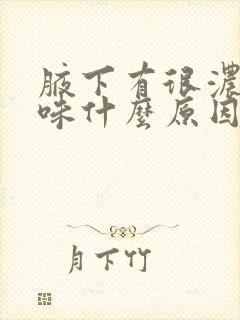 腋下有很濃
味什麼原因
月下竹